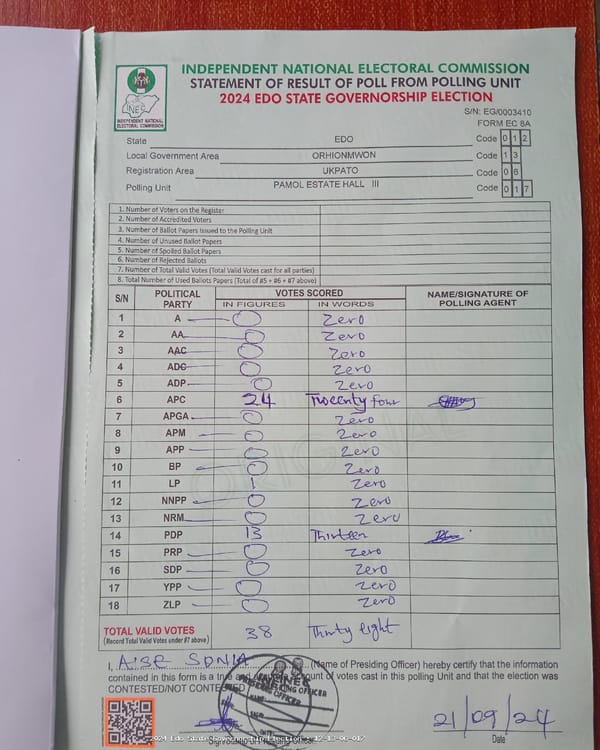 INDEPENDENT NATIONAL ELECTORAL COMMISSION
STATEMENT OF RESULT OF POLL FROM POLLING UNIT
2024 EDO STATE GOVERNORSHIP ELECTION
INEC
INDEPENDENT NATIONAL
ELECTORAL COMMISSION
S/N: EG/0003410
FORM EC 8A
State EDO Code 0 1 2
Local Government Area ORHIONMWON Code 1 3
Registration Area UKPATO Code 0 6
Polling Unit PAMOL ESTATE HALL III Code 0 1 7
1. Number of Voters on the Register
2. Number of Accredited Voters
3. Number of Ballot Papers Issued to the Polling Unit
4. Number of Unused Ballot Papers
5. Number of Spoiled Ballot Papers
6. Number of Rejected Ballots
7. Number of Total Valid Votes (Total Valid Votes cast for all parties)
8. Total Number of Used Ballots Papers (Total of #5 + #6 + #7 above)
S/N POLITICAL PARTY VOTES SCORED IN FIGURES IN WORDS NAME/SIGNATURE OF POLLING AGENT
1 A 0 Zero
2 AA 0 Zero
3 AAC 0 Zero
4 ADC 0 Zero
5 ADP 0 Zero
6 APC 24 Tweenty four
7 APGA 0 Zero
8 APM 0 Zero
9 APP 0 Zero
10 BP 0 Zero
11 LP 1 Zero
12 NNPP 0 Zero
13 NRM 0 Zero
14 PDP 13 Thirteen
15 PRP 0 Zero
16 SDP 0 Zero
17 YPP 0 Zero
18 ZLP 0 Zero
TOTAL VALID VOTES 38 Thirty eight
(Record Total Valid Votes under #7 above)
I, AISE SONIA (Name of Presiding Officer) hereby certify that the information
contained in this form is a true and account of votes cast in this polling Unit and that the election was
CONTESTED/NOT CONTESTED
INEC
PRESIDING OFFICER
21/09/24
Date
2024 Edo State Governorship Election - 12-13-06-017